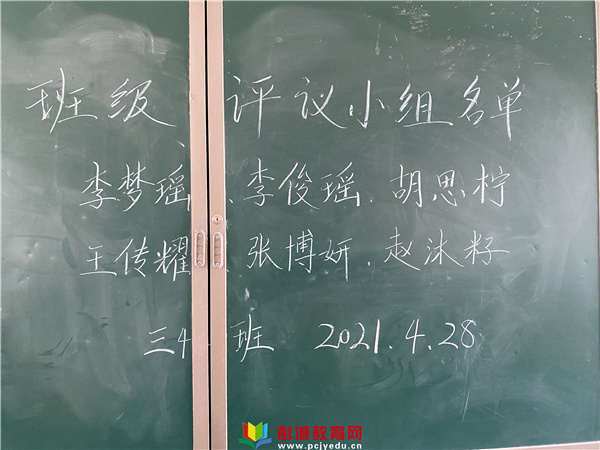 班级 评议小组名单
李梦瑶、李俊瑶、胡思柠
王传耀、张博妍、赵沐籽
三4班 2021.4.28
彭城教育网
www.pcjyedu.cn